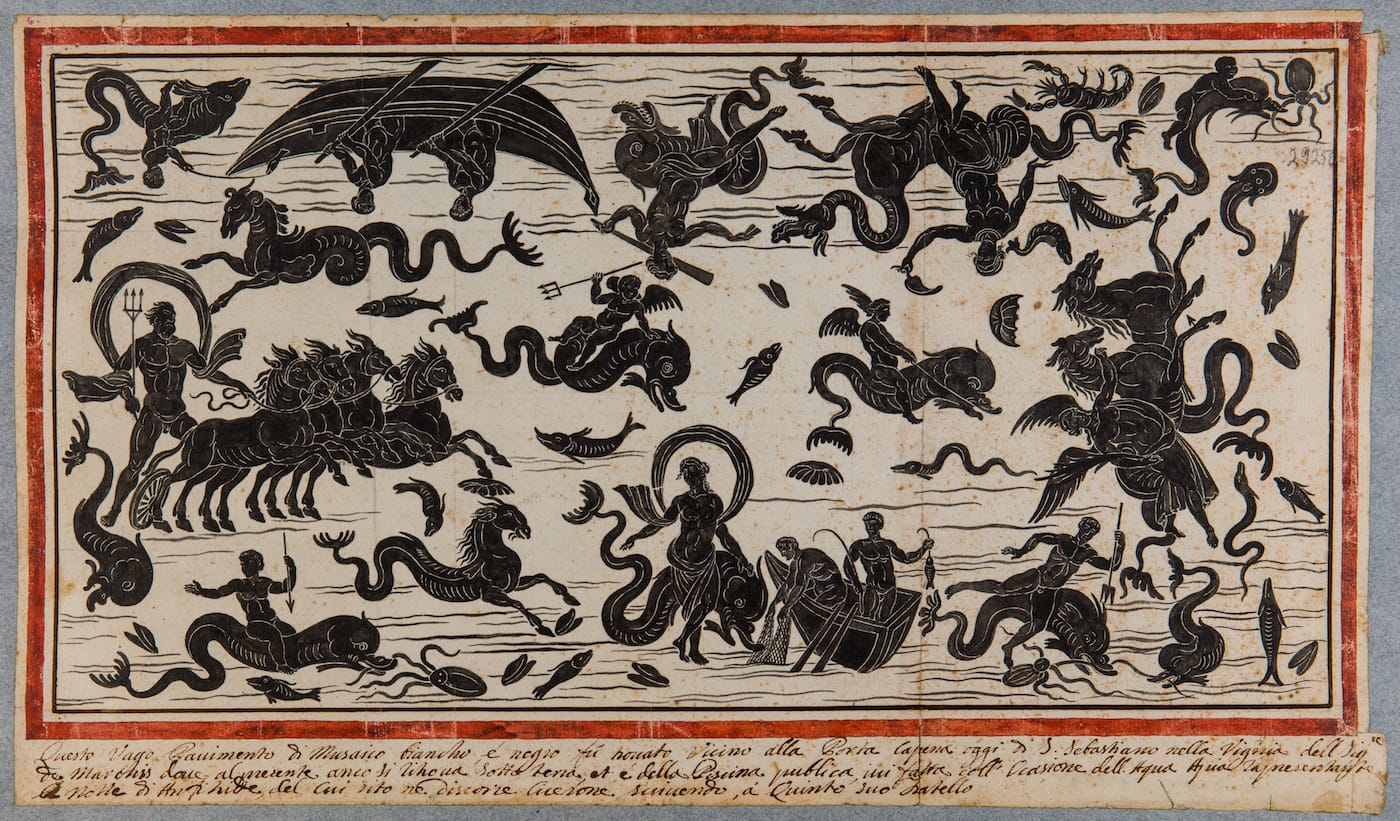 6.
2925
Questo Vago Pavimento di Musaico biancho e negro fù trovato Vicino alla Porta Capena oggi di S. Sebastiano nella Vignia dell
de doue al presente anco si troua Sotto tera, et e della Piscina publica, iui fatta coll' Ocasione dell'Aqua
Le Nozze di del Cui rito ne discorre Cicerone à Quinto suo fratello